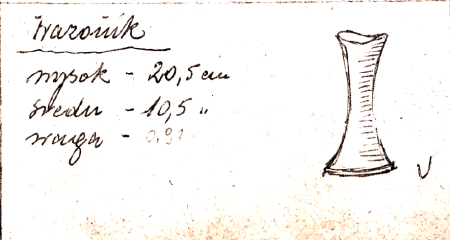 wazonik
wysok - 20,5 cm
średn - 10,5 "
waga - 0,91
V